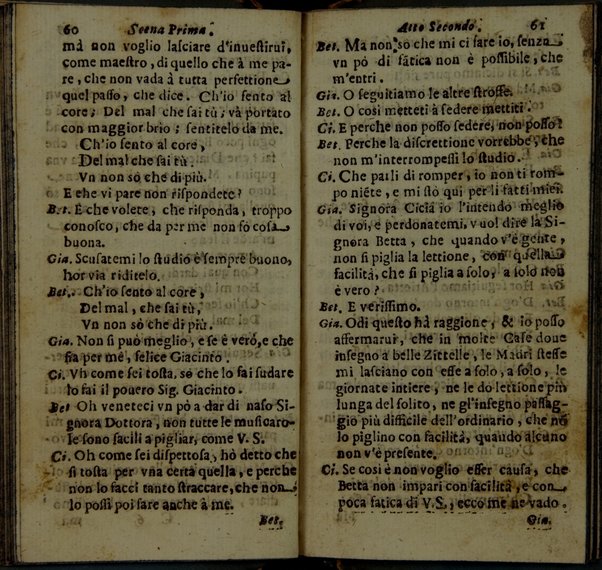 60 Scena Prima.
mà non voglio lasciare d'inuestirui,
come maestro, di quello che à me pa-
re, che non vada à tutta perfettione
quel passo, che dice. Ch'io sento al
core; Del mal che fai tù; và portato
con maggior brio; sentitelo da me.
Ch'io sento al core,
Del mal che fai tù.
Vn non sò che di più.
E che vi pare non rispondete?
Bet. E che volete, che risponda, troppo
conosco, che da per me non fò cosa
buona.
Gia. Scusatemi lo studio è sempre buono,
hor via riditelo.
Bet. Ch'io sento al core,
Del mal, che fai tù,
Vn non sò che di più.
Gia. Non si può meglio, e se è verò, e che
sia per mè, felice Giacinto.
Ci. Vh come sei tosta, sò che lo fai sudare
lo fai il pouero Sig. Giacinto.
Bet Oh veneteci vn pò a dar di naso Si-
gnora Dottora, non tutte le musicaro-
le sono facili a pigliar, come V. S.
Ci. Oh come sei dispettosa, hò detto che
si tosta per vna certa quella, e perche
non lo facci tanto straccare, che non
lo possi poi fare anche à me.
Bet.
Atto Secondo. 61
Bet. Ma non sò che mi ci fare io, senza
vn pò di fatica non è possibile, che
m'entri.
Gia. O seguitiamo le altre stroffe.
Bet. O così metteti à sedere mettiti.
Ci. E perche non posso sedere, non posso?
Bet. Perche la discrettione vorrebbe, che
non m'interrompessi lo studio.
Ci. Che parli di romper, io non ti rom-
po niẽte, e mi stò qui per li fatti miei.
Gia. Signora Cicia io l'intendo meglio
di voi, e perdonatemi, vuol dire la Si-
gnora Betta, che quando v'è gente,
non si piglia la lettione, con quella
facilità, che si piglia a solo, a solo non
è vero?
Bet. E verissimo.
Gia. Odi questo hà raggione, & io posso
affermarui, che in molte Case doue
insegno a belle Zittelle, le Madri stesse
mi lasciano con esse a solo, a solo, le
giornate intiere, ne le do lettione più
lunga del solito, ne gl'insegno passag-
gio più difficile dell'ordinario, che nõ
lo piglino con facilità, quando alcuno
non v'è presente.
Ci. Se così è non voglio esser causa, che
Betta non impari con facilità, e con
poca fatica di V.S., ecco me ne vado.
Gia.